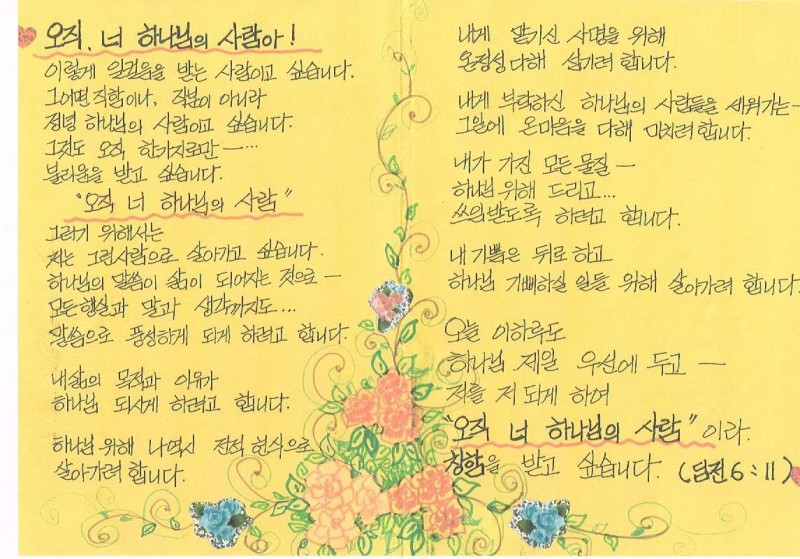 오직, 너 하나님의 사람아!
이렇게 일컬음을 받는 사람이고 싶습니다.
그어떤 직함이나, 직분이 아니라
정녕 하나님의 사람이고 싶습니다.
그것도 오직, 한가지로만 ー…
불리움을 받고 싶습니다.
"오직 너 하나님의 사람"
그러기 위해서는
저는 그런사람으로 살아가고 싶습니다.
하나님의 말씀이 삶이 되어지는 것으로 ー
모든행실과 말과 생각까지도...
말씀으로 풍성하게 되게 하려고 합니다.
내삶의 목적과 이유가
하나님 되시게 하려고 합니다.
하나님 위해 나역시 전적 헌신으로
살아가려 합니다.
내게 맡기신 사명을 위해
온정성 다해 섬기려 합니다.
내게 부탁하신 하나님의 사람들을 세워가는ー
그일에 온마음을 다해 미치려 합니다.
내가 가진 모든 물질 ー
하나님 위해 드리고...
쓰임받도록 하려고 합니다.
내 기쁨은 뒤로 하고
하나님 기뻐하실 일들 위해 살아가려 합니다.
오늘 이하루도
하나님 제일 우선에 두고 ー
저를 저 되게 하여
"오직 너 하나님의 사람" 이라.
칭함을 받고 싶습니다. (딤전6:11)